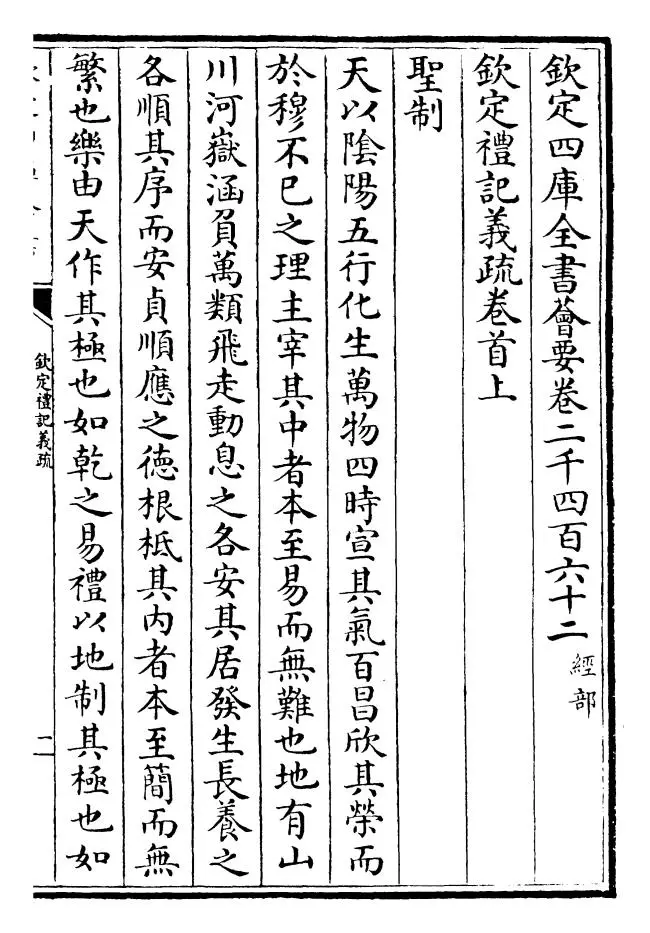 欽定四庫全書薈要卷二千四百六十二 經部
欽定禮記義疏卷首上
聖制
天以陰陽五行化生萬物四時宣其氣百昌欣其榮而
於穆不已之理主宰其中者本至易而無難也地有山
川河嶽涵負萬類飛走動息之各安其居發生長養之
各順其序而安貞順應之德根柢其內者本至簡而無
繁也樂由天作其極也如乾之易禮以地制其極也如
欽定禮記義疏